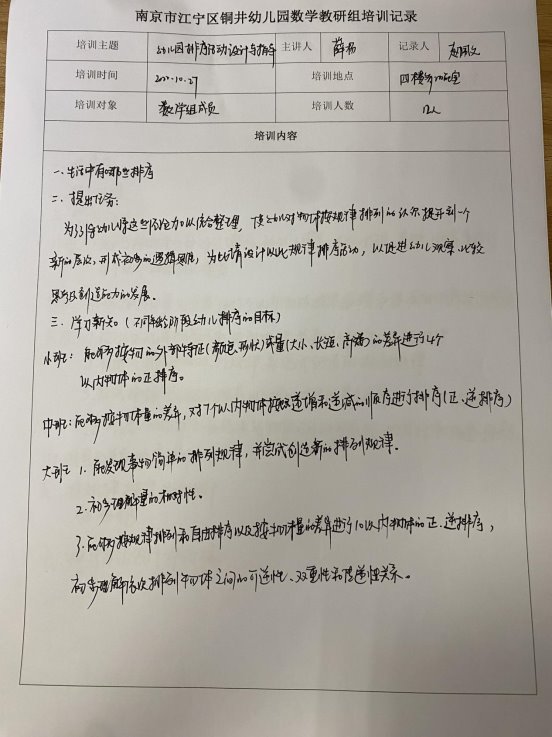 南京市江宁区铜井幼儿园数学教研组培训记录
培训主题 幼儿园排序活动设计与指导 主讲人 薛杨 记录人
培训时间 2022.10.27 培训地点 四楼
培训对象 数学组成员 培训人数 12人
培训内容
一、生活中有哪些排序
二、提出任务：
为引导幼儿将这些经验加以综合整理，使幼儿对物体按规律排列的认识提升到一个
新的层次，形成初步的逻辑思维，为此请设计以此规律排序活动，以促进幼儿观察、比较
思考及创造能力的发展。
三、学习新知（不同年龄阶段幼儿排序的目标）
小班：能够按物的外部特征（颜色、形状）或量（大小、长短、高矮）的差异进行4个
以内物体的正排序。
中班：能够按物体量的差异，对7个以内物体按递增和递减的顺序进行排序（正、逆排序）
大班 1. 能发现事物简单的排列规律，并尝试创造新的排列规律。
2. 初步理解量的相对性。
3. 能够按规律排列和自由排序以及按物体量的差异进行10以内物体的正、逆排序，
初步理解依次排列物体之间的可逆性、双重性和传递性关系。